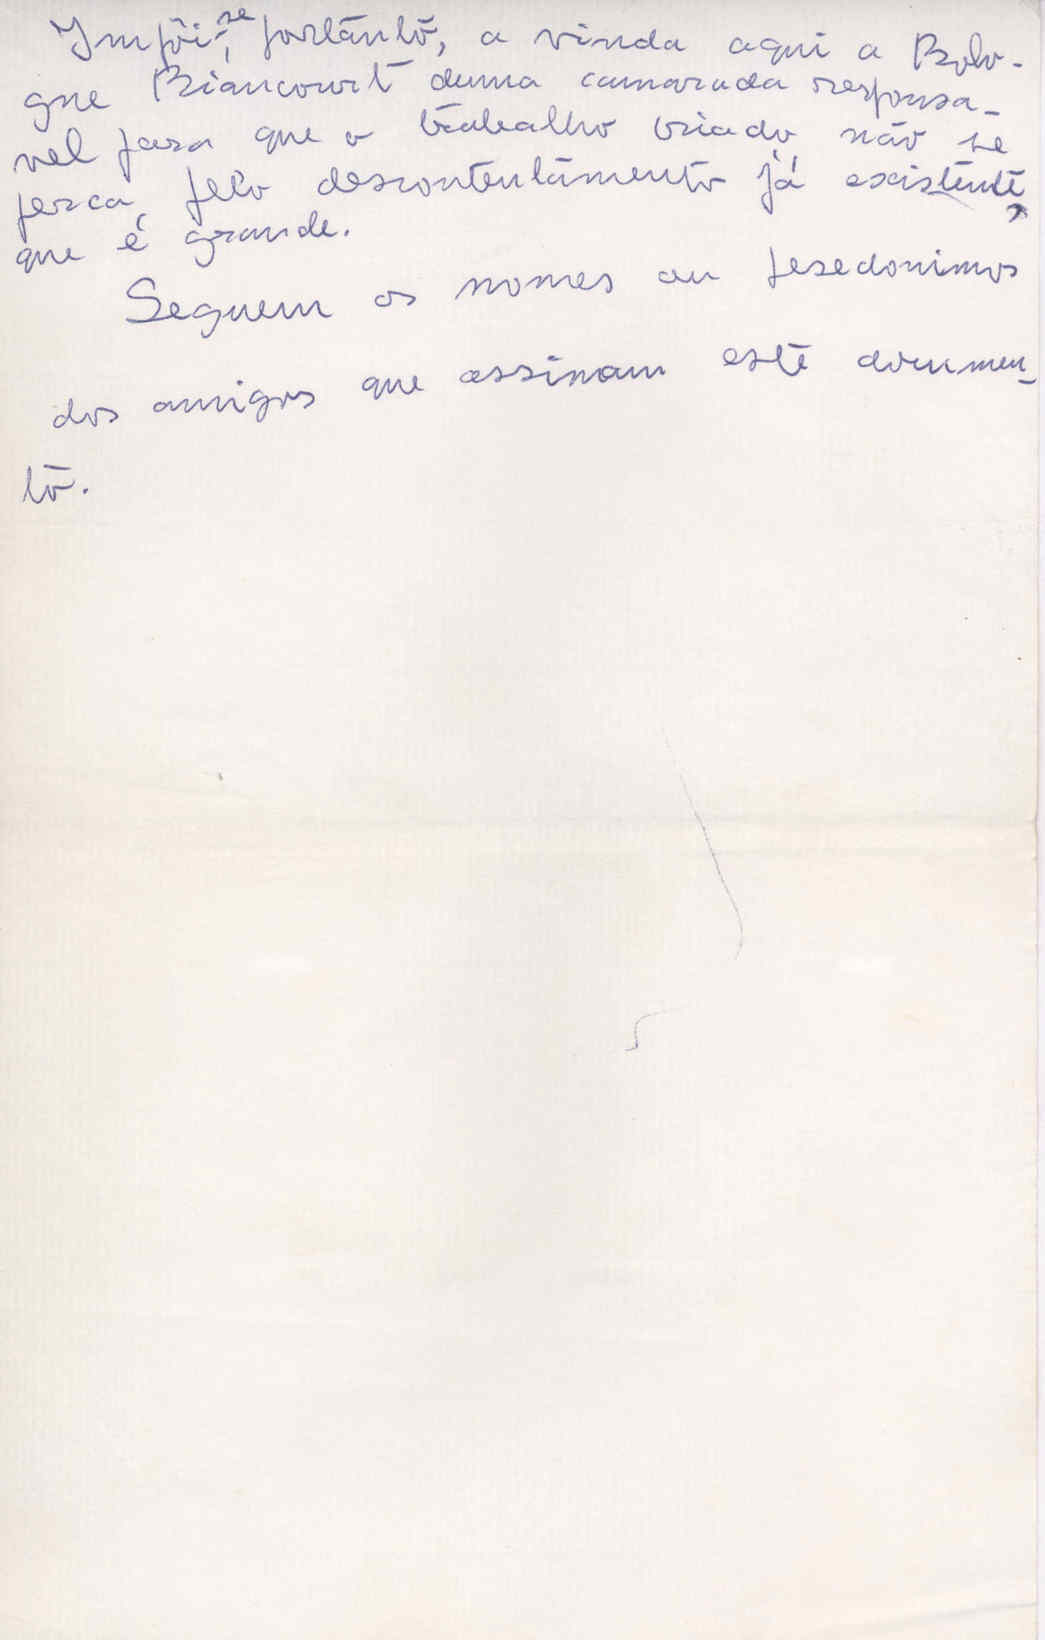 Impõi-se, portanto, a vinda aqui a Bolo-
gne Biancourt duma camarada responsa-
vel para que o trabalho criado não se
perca, pelo descontentamento já existente,
que é grande.
Seguem os nomes ou pesedonimos
dos amigos que assinam este documen-
to.